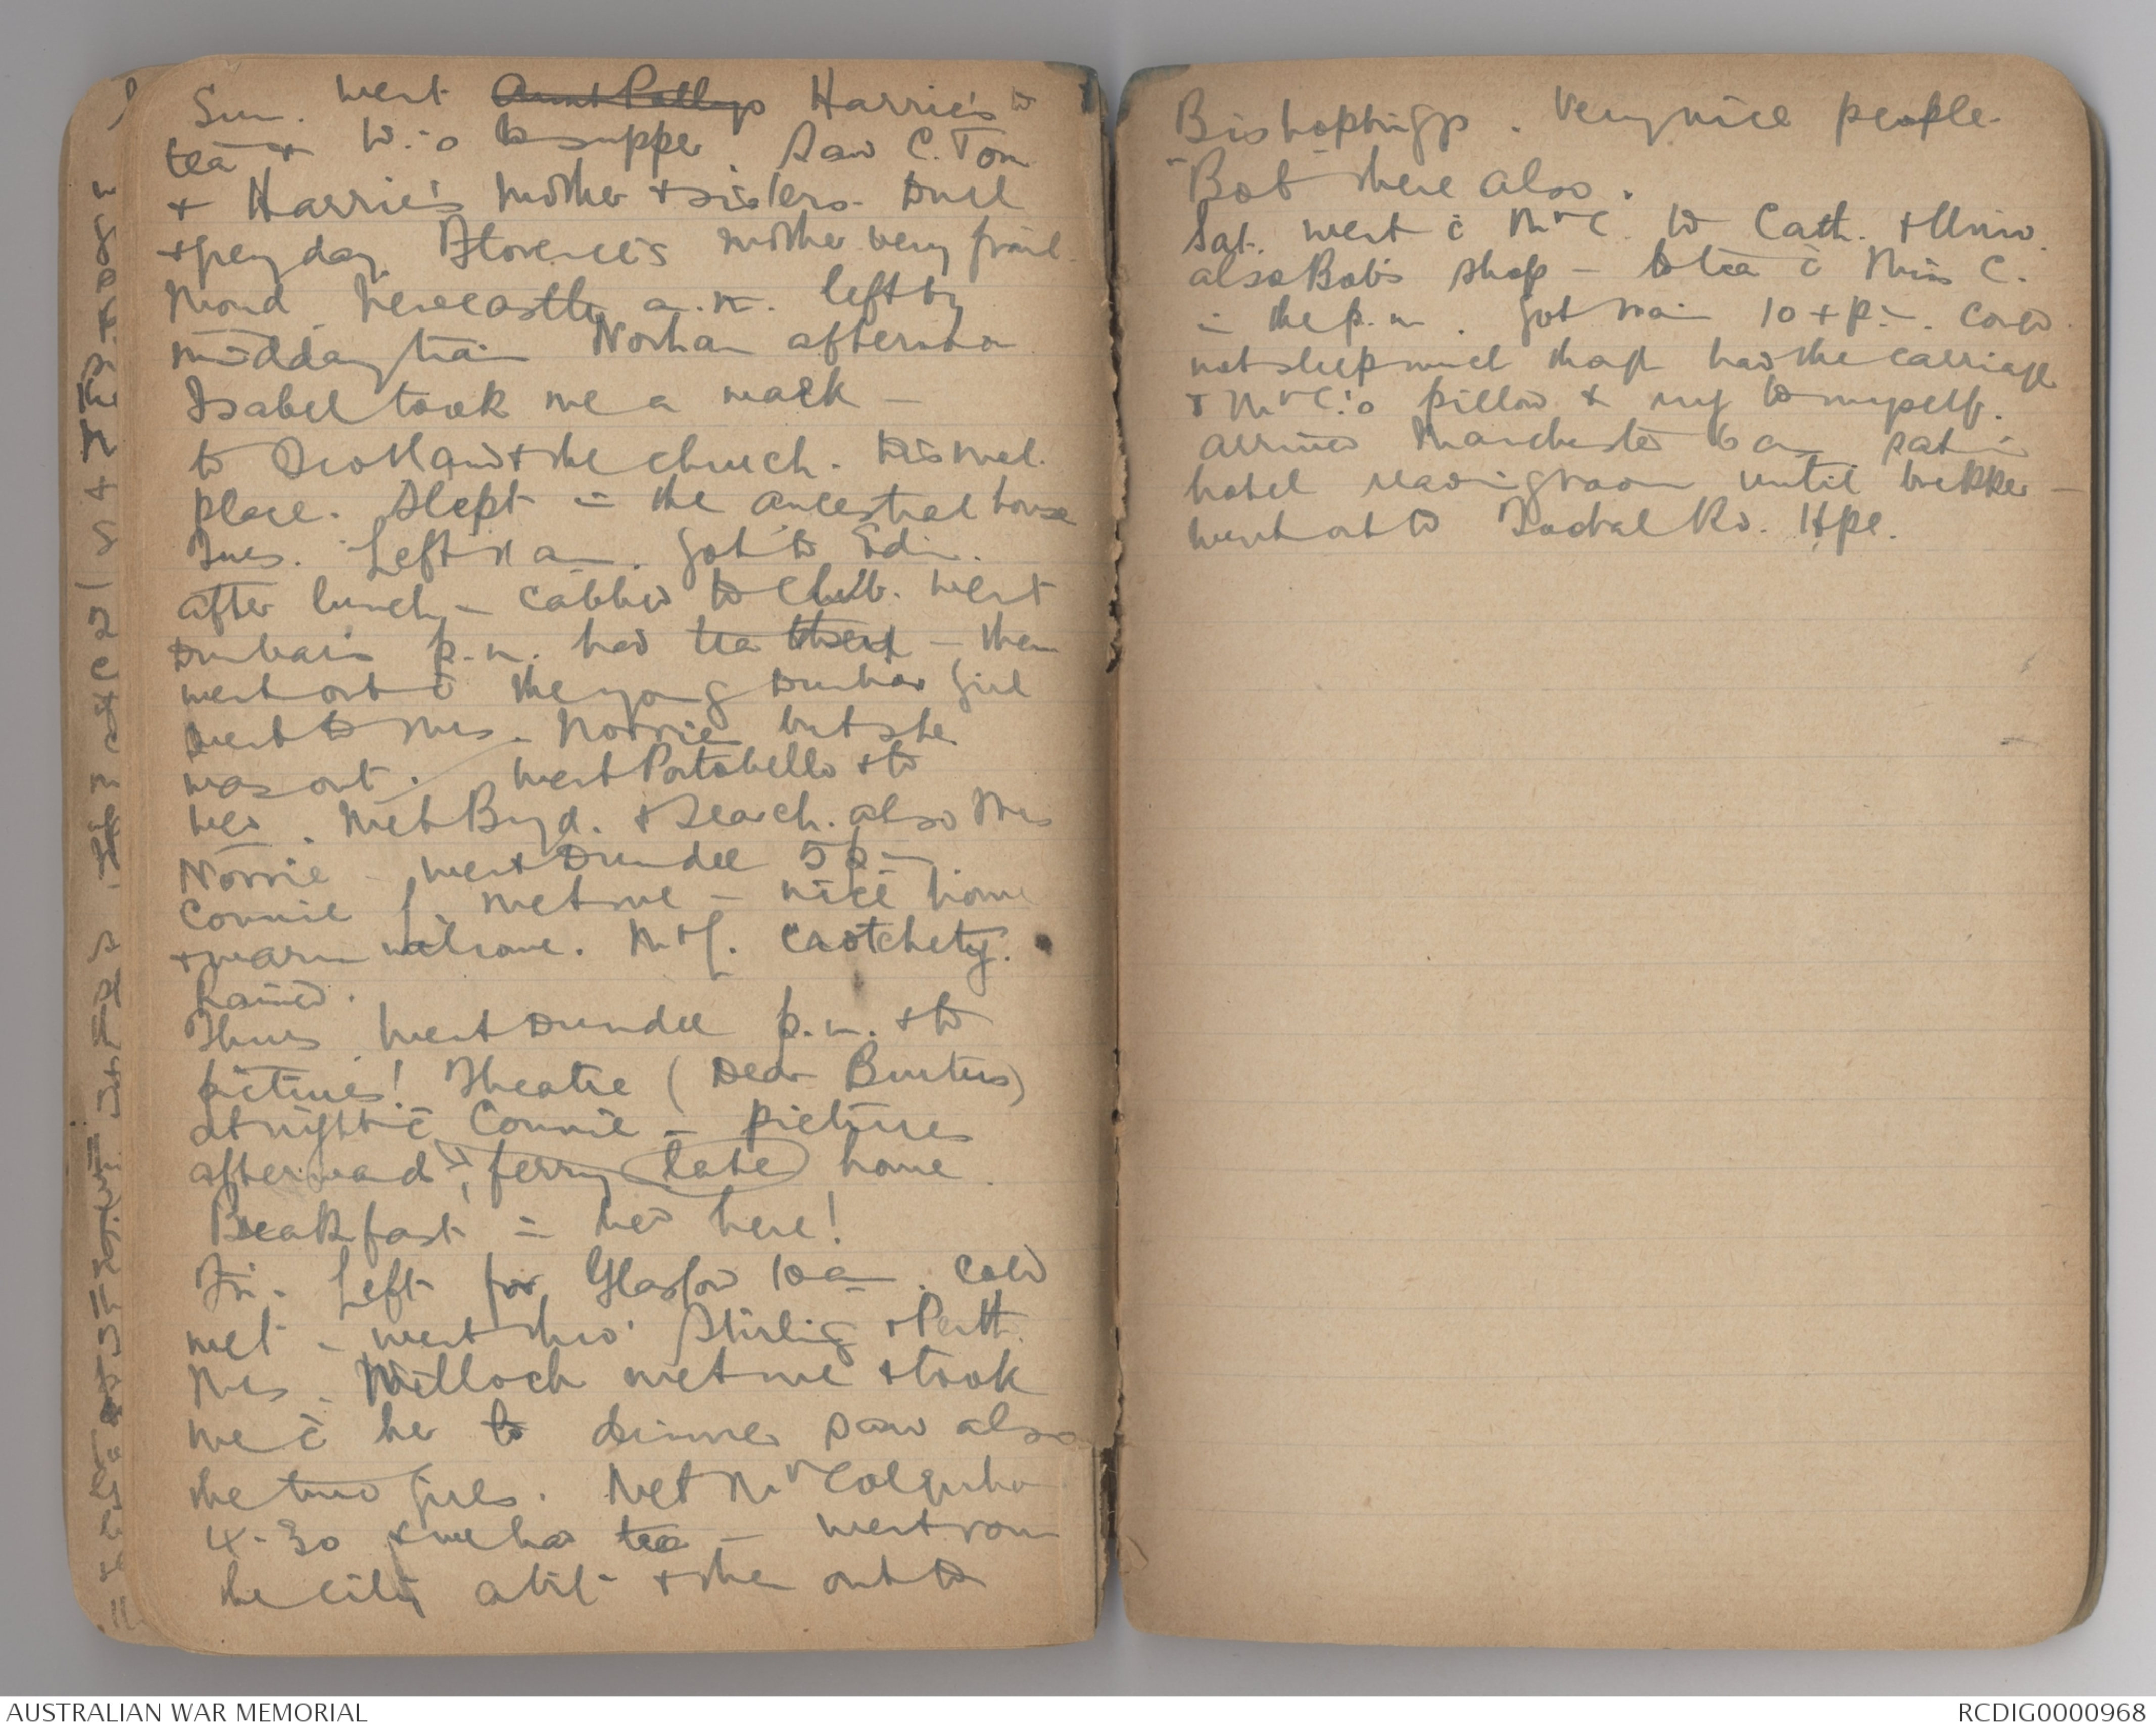 Sun. Went Aunt Pollys Harrie's to
tea + W.'s to supper. Saw C. Tom
+ Harrie's mother + sisters. Dull
+ grey day. Florence's mother very frail.
Mond Newcastle a.m. left by
midday train Norham afternoon
Isabel took me a walk –
to Scotland + the church. Dismal
place. Slept in the ancestral house
Tues. Left 11 am. Got to Edin.
after lunch – cabbed to Club. Went
Dunbars p.m. had tea there – then
went out c̄ the young Dunbar girl
Went to Mrs. Norrie but she
was out. Went Portobello + to
bed. Met Boyd. + Search. also Mrs
Norrie – went Dundee 5 p.m
Connie f. met me – nice home
+ warm welcome. Mr f. crotchety.
Rained.
Thurs Went Dundee p.m. + to
pictures! Theatre (Dear Brutus)
at night c̄ Connie – pictures
afterward, ferry late home.
Breakfast in bed here!
Fri. Left for Glasgow 10 am. Cold
wet – went thro' Stirling + Perth.
Mrs. Willoch met me + took
me c̄ her to dinner saw also
the two girls. Met Mr Colquhoun
4-30 + we had tea – went round
the city a bit + then out to
Bishopbriggs. Very nice people.
"Bob" there also.
Sat. went c̄ Mr C. to Cath. + Univ.
also Bob's shop – to tea c̄ Miss C.
in the p.m. Got train 10 + p.m. Could
not sleep much though had the carriage
+ Mr C.'s pillow + rug to myself.
arrived Manchester 6 am sat in
hotel reading room until brekker –
went out to Hpl.
AUSTRALIAN WAR MEMORIAL
RCDIG0000968